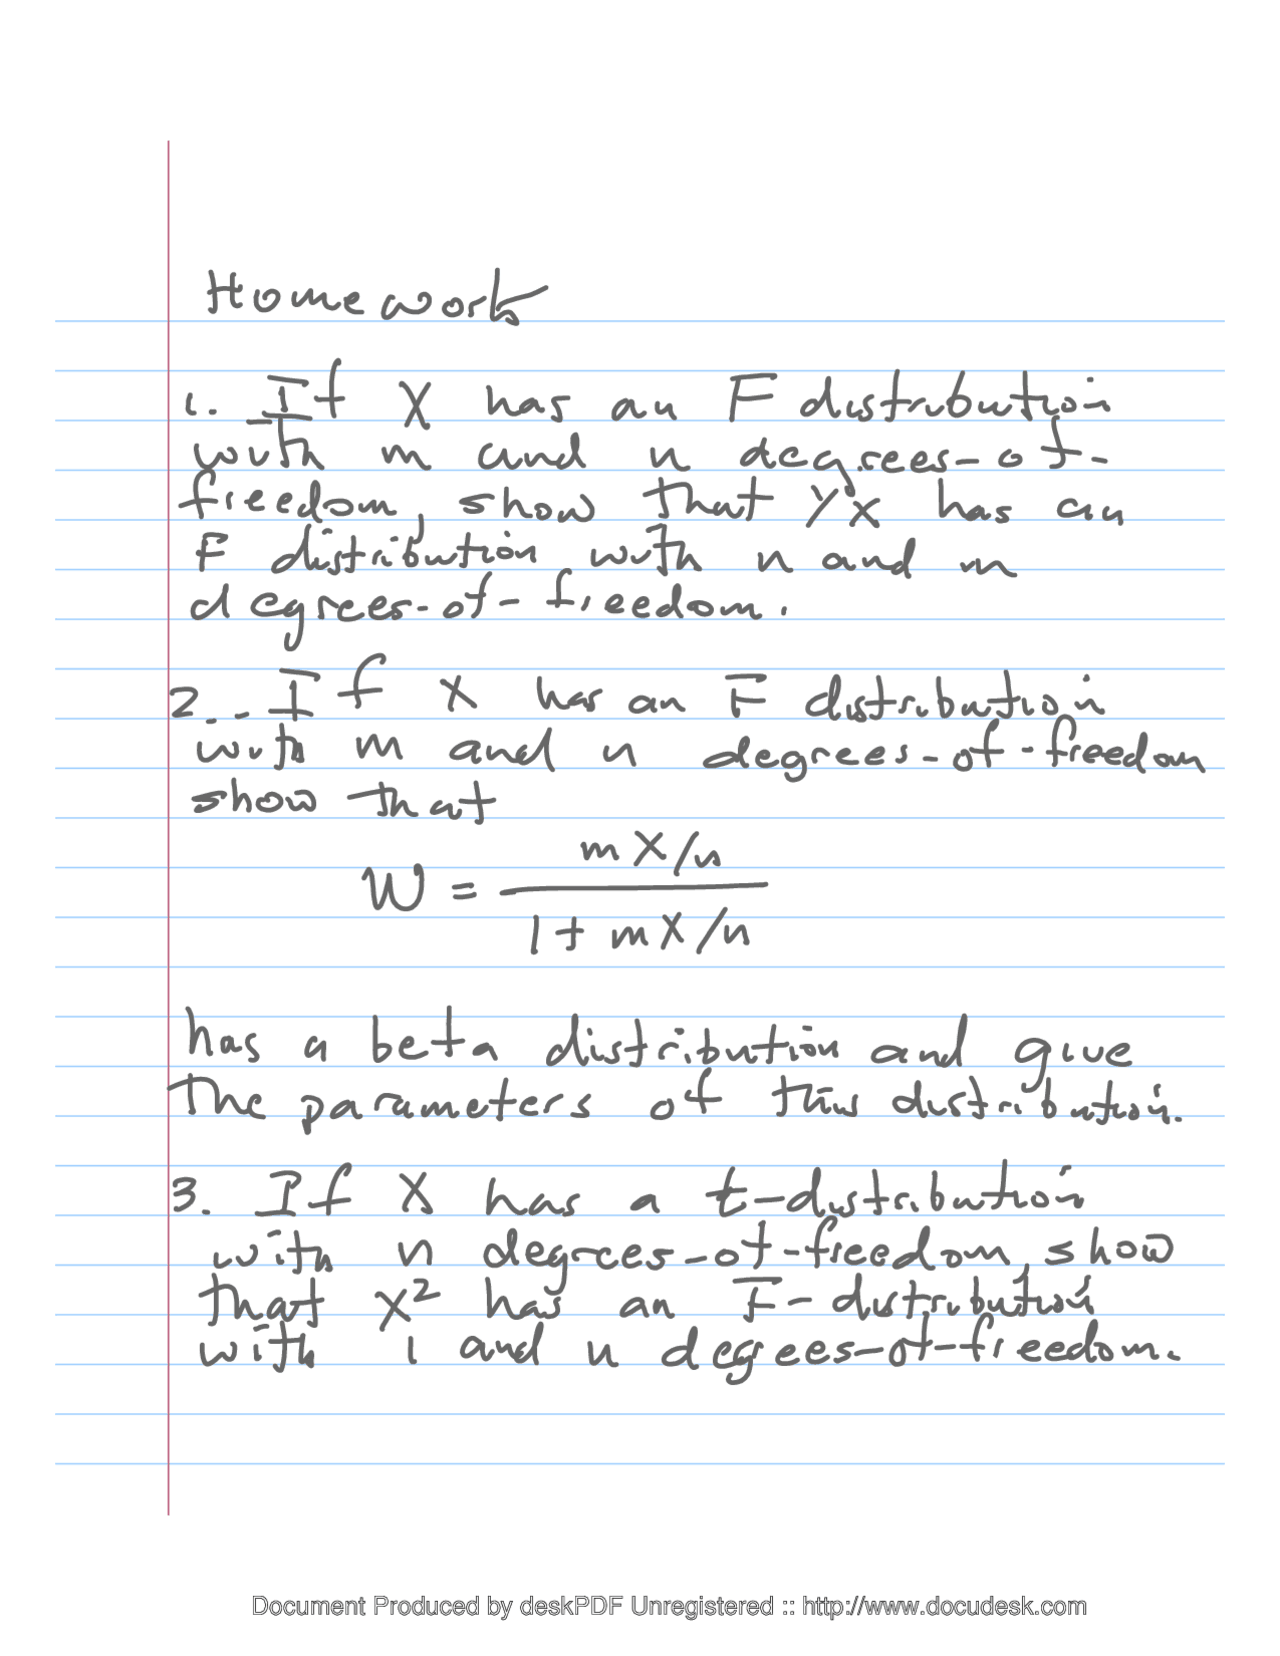 Homework
1. If X has an F distribution
with m and n degrees-of-
freedom, show that 1/X has an
F distribution with n and m
degrees-of-freedom.
2. If X has an F distribution
with m and n degrees-of-freedom
show that
W = (mX/n) / (1 + mX/n)
has a beta distribution and give
the parameters of this distribution.
3. If X has a t-distribution
with n degrees-of-freedom, show
that X² has an F-distribution
with 1 and n degrees-of-freedom.
Document Produced by deskPDF Unregistered :: http://www.docudesk.com